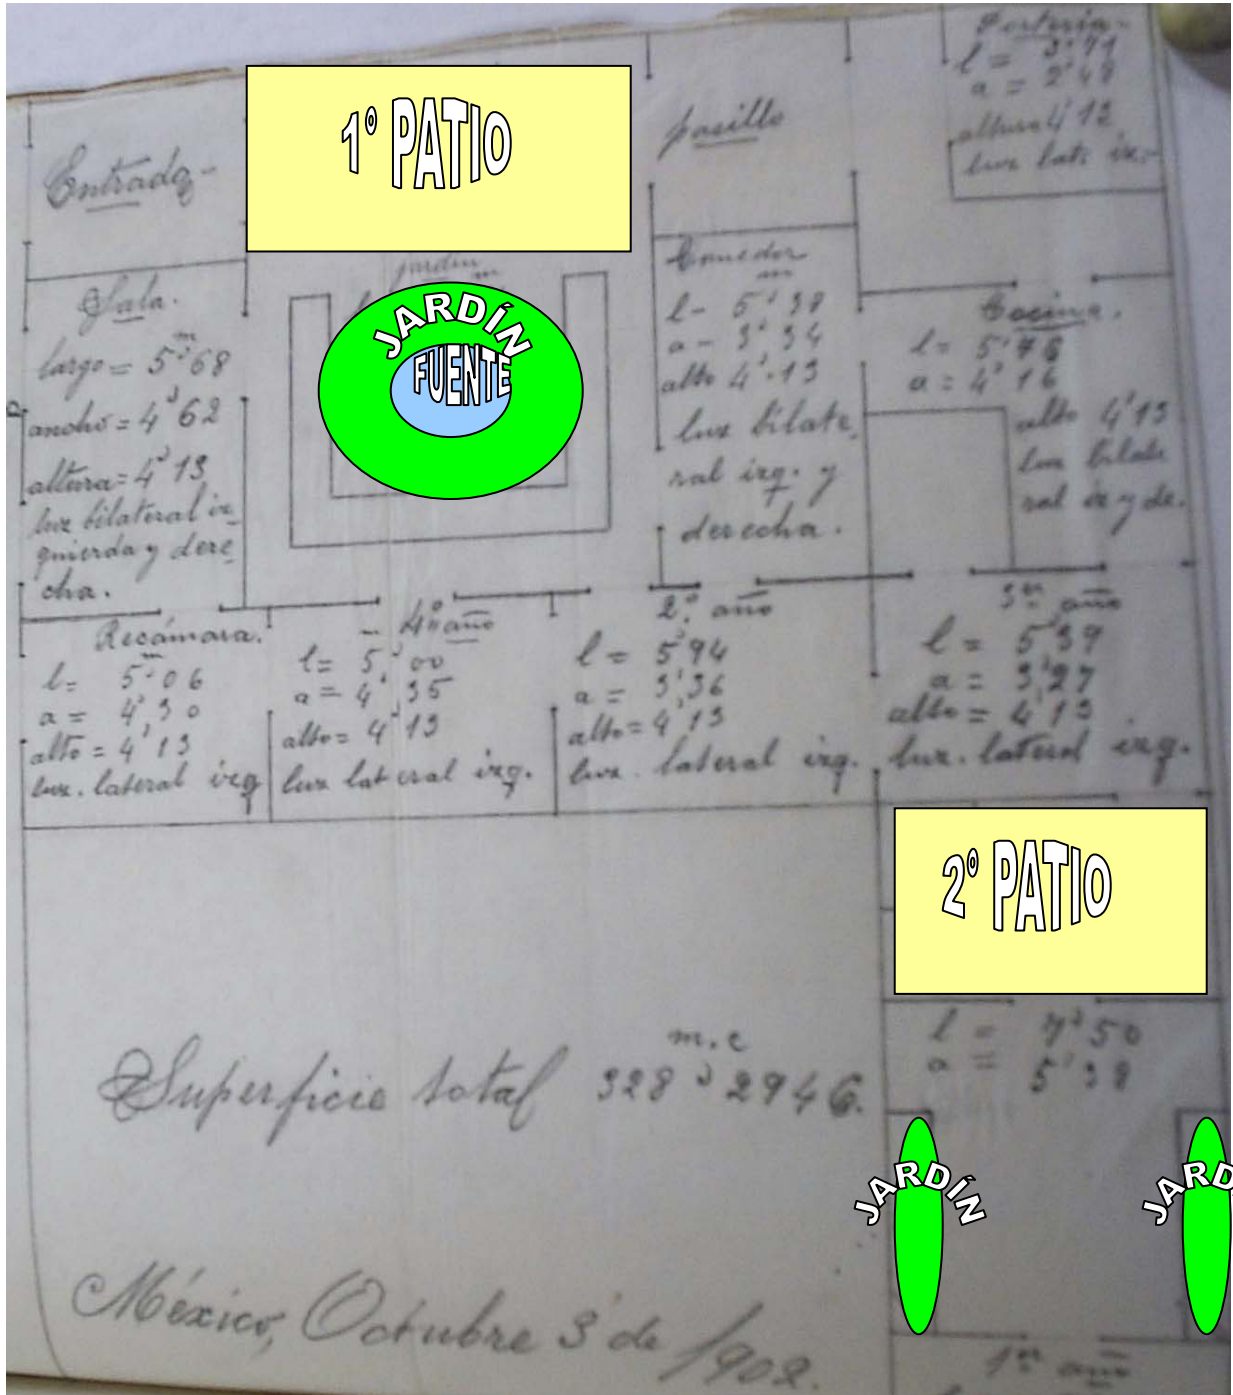 Portería-
l = 3'71
a = 2'48
altura 4'12
luz lat. iz.-
1º PATIO
pasillo
Entrada-
jardín
m
JARDÍN
FUENTE
Sala.
m
largo = 5'68
ancho = 4'62
altura = 4'13
luz bilateral iz_
quierda y dere_
cha.
Comedor
m
l - 5'38
a - 3'34
alto 4'.13
luz bilate_
ral izq. y
derecha.
Cocina.
l = 5'76
a = 4'16
alto 4'13
luz bilate
ral iz y de.
Recámara.
m
l = 5'06
a = 4'30
alto = 4'13
luz. lateral izq
4º año
l = 5'00
a = 4'35
alto = 4'13
luz lateral izq.
2º. año
l = 5'94
a = 3'36
alto = 4'13
luz. lateral izq.
3er año
l = 5'39
a = 3'27
alto = 4'13
luz. lateral izq.
2º PATIO
l = 7'50
a = 5'38
m.c
Superficie total 328'2946.
JARDÍN
JARD
México, Octubre 3 de 1902.
1er año